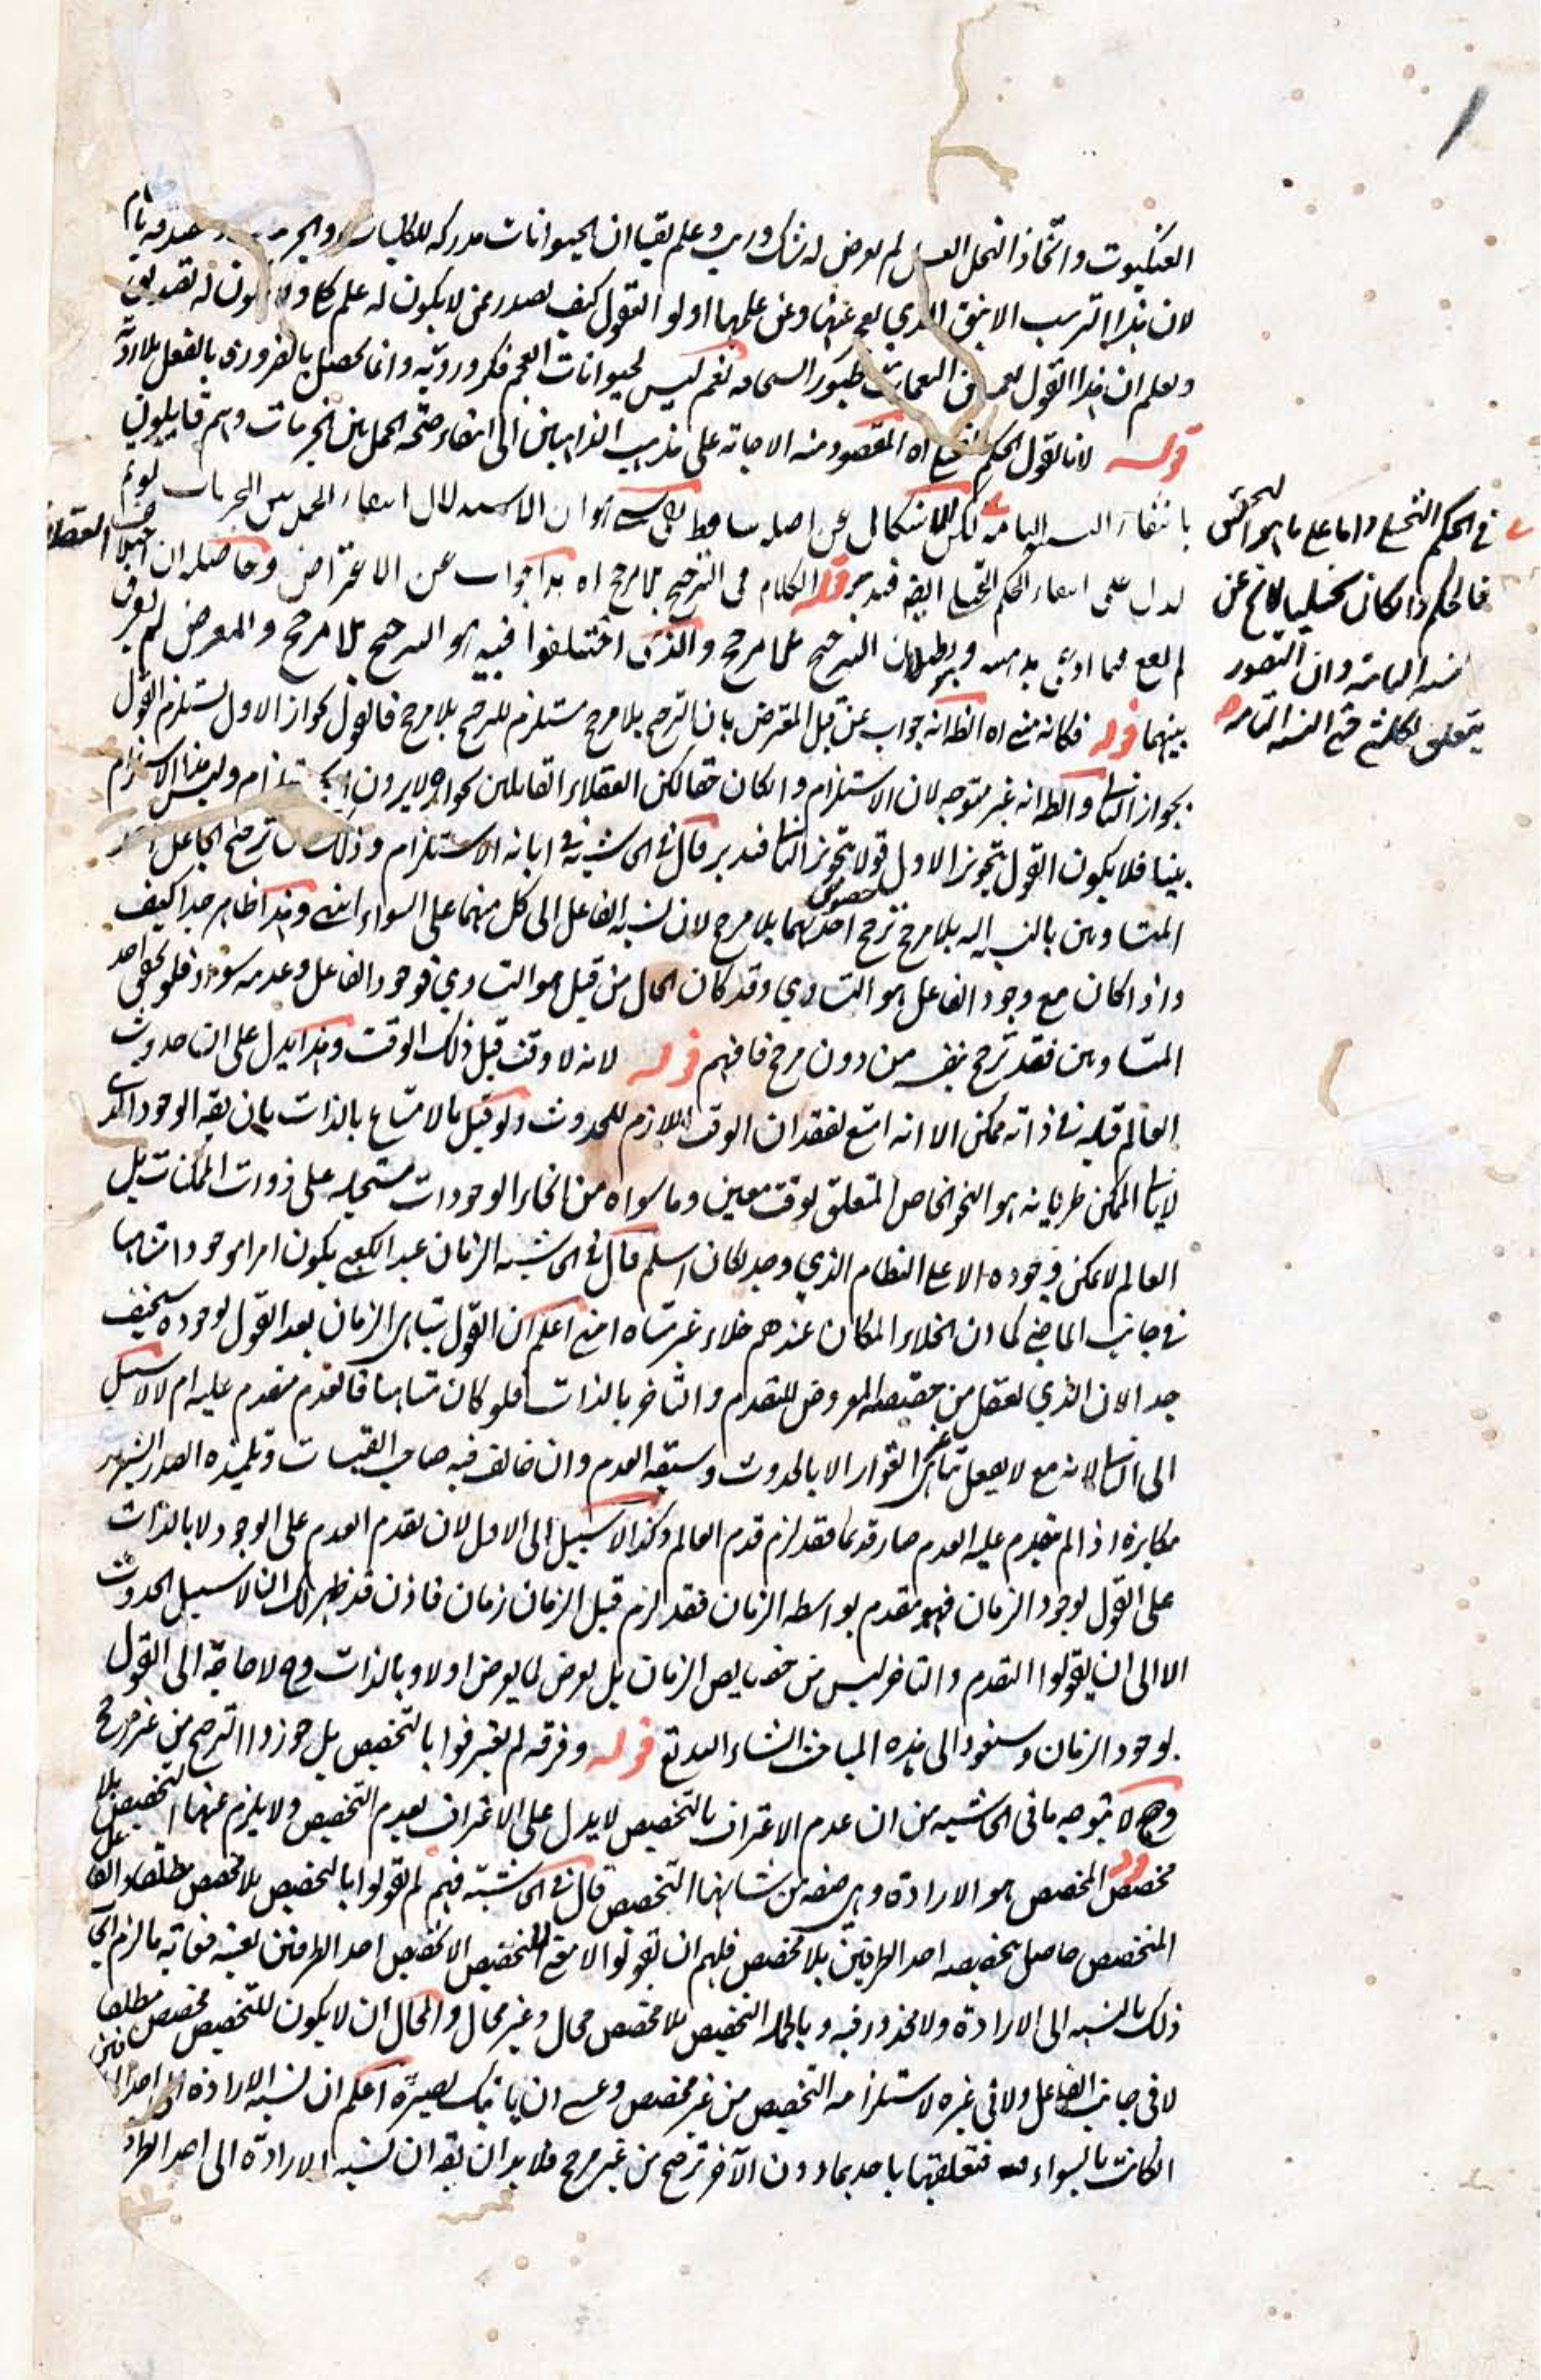 العنكبوت واتخاذ النحل العسل لم يعرض له شك وريب وعلم يقينا ان الحيوانات مدركة للكليات
لان هذا الترتيب الانيق الذي يعجز عنها وعن علمها اولو العقول كيف يصدر ممن لا يكون له علم كلي ولا يكون له تصديق
وليعلم ان هذا القول نعم ليس لحيوانات العجم فكر وروية وانما يحصل بالضرورة بالفعل بلا روية
قوله لانا نقول الحكم اه المقصود منه الاجابة على مذهب الذاهبين الى انتفاء صحة الحمل بين الجزئيات وهم قايلون
بانتفاء النسبة التامة لكن للاشكال عن اصله ساقط هو ان الاستدلال انتفاء الحمل بين الجزئيات
يدل على انتفاء الحكم ايضا فتدبر قوله الكلام في الترجيح بلا مرجح اه هذا جواب عن الاعتراض وحاصله ان اختلاف العقلاء
لم يقع فيما ادعى بداهته وهو بطلان الترجيح بلا مرجح والذي اختلفوا فيه هو الترجيح بلا مرجح والمعترض لم يفرق
بينهما قوله فكانه منع اه الظ انه جواب عن قبل المعترض بان الترجيح بلا مرجح مستلزم للترجح بلا مرجح فالقول بجواز الاول يستلزم القول
بجواز الثاني والظ انه غير متوجه لان الاستلزام والكان حقا لكن العقلاء القايلين بجوازه لا يرون الاستلزام وليس هذا الاستلزام
بينا فلا يكون القول بتجويز الاول قولا بتجويز الثاني فتدبر قال في الحاشية في ابانة الاستلزام وذلك لان ترجيح الفاعل احد
المتساويين بالنسبة اليه بلا مرجح ترجح احدهما بلا مرجح لان نسبة الفاعل الى كل منهما على السواء انتهى وهذا ظاهر جدا كيف
واذا كان مع وجود الفاعل هو التساوي وقد كان الحال من قبل هو التساوي فوجود الفاعل وعدمه سواء فلو تحقق احد
المتساويين فقد ترجح بنفسه من دون مرجح فافهم قوله لانه لا وقت قبل ذلك الوقت وهذا يدل على ان حدوث
العالم قبله في ذاته ممكن الا انه امتنع لفقدان الوقت اللازم للحدوث ولو قيل بالامتناع بالذات بان يقه الوجود الذي
لا يابى الممكن طريانه هو النحو الخاص المتعلق بوقت معين وما سواه من انحاء الوجودات مستحيلة على ذوات الممكنات بل
العالم لا يمكن وجوده الا على النظام الذي وجد لكان اسلم قال في الحاشية الزمان عند الكعبي يكون امرا موجودا متناهيا
في جانب الماضي كما ان الخلاء المكان عندهم خلاء غير متناه انتهى اعلم ان القول بتناهي الزمان بعد القول بوجوده سخيف
جدا لان الذي يعقل من حقيقته المعروض للتقدم والتاخر بالذات فلو كان متناهيا فالعدم متقدم عليه ام لا لا سبيل
الى الثاني لانه مع لا يعقل تناهي القوار الا بالحدوث وسبقة العدم وان خالف فيه صاحب القبسات وتلميذه الصدر الشهير
مكابرة اذا لم يتقدم عليه العدم صار قديما فقد لزم قدم العالم وكذا لا سبيل الى الاول لان تقدم العدم على الوجود لا بالذات
على القول بوجود الزمان فهو متقدم بواسطة الزمان فقد لزم قبل الزمان زمان فاذن قد ظهر لك ان لا سبيل الحدوث
الا الى ان يقولوا التقدم والتاخر ليس من خصايص الزمان بل يعرض لما يعرض اولا وبالذات وح لا حاجة الى القول
بوجود الزمان وسنعود الى هذه المباحث انشاء الله تع قوله وفرقة لم يعترفوا بالتخصيص بل جوزوا الترجيح من غير مرجح
وح لا يتوجه ما في الحاشية من ان عدم الاعتراف بالتخصيص لا يدل على الاعتراف بعدم التخصيص ولا يلزم عنها التخصيص بلا
مخصص قوله المخصص هو الارادة وهي صفة من شانها التخصيص قال في الحاشية فهم لم يقولوا بالتخصيص بلا مخصص مطلقا والفاعل
المخصص حاصل بتخصيصه احد الطرفين بلا مخصص فلهم ان يقولوا لا معنى للتخصيص الا تخصيص احد الطرفين بعينه فغاية ما لزم
ذلك بالنسبة الى الارادة ولا محذور فيه وبالجملة التخصيص بلا مخصص محال وغير محال والمحال ان لا يكون للتخصيص مخصص مطلقا
لا في جانب الفاعل ولا في غيره لاستلزامه التخصيص من غير مخصص وعسى ان ياتيك بصيرة اعلم ان نسبة الارادة الى احد
الكانت بالسواء فتعلقها باحدهما دون الآخر ترجيح من غير مرجح فلا بد ان يقه ان نسبة الارادة الى احد
في الحكم التخيلي واما على ما هو التحقيق
فالحكم والكان تخيليا لا يخ عن
نسبة التامة وان التصور
يتعلق بكل شئ حتى النسبة التامة